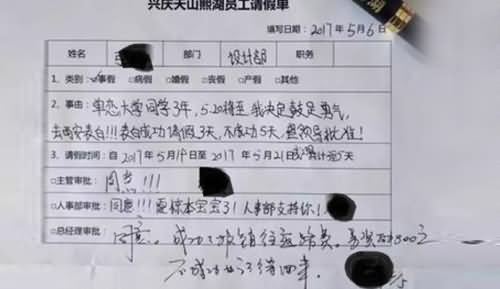 兴庆天山熙湖员工请假单
填写日期：2017年5月6日
姓名 部门 设计部 职务
1、类别：☑事假 □病假 □婚假 □丧假 □产假 □其他
2、事由：单恋大学同学3年，5.20将至我决定鼓足勇气，
去西安表白!!!表白成功请假3天，不成功5天，望领导批准！
3、请假时间：自2017年5月19日至2017年5月21日 共计 5天
□主管审批：同意!!!
□人事部审批：同意!!! 本宝宝了！人事部支持你！
□总经理审批：同意。成功了报销往返路费，
不成功